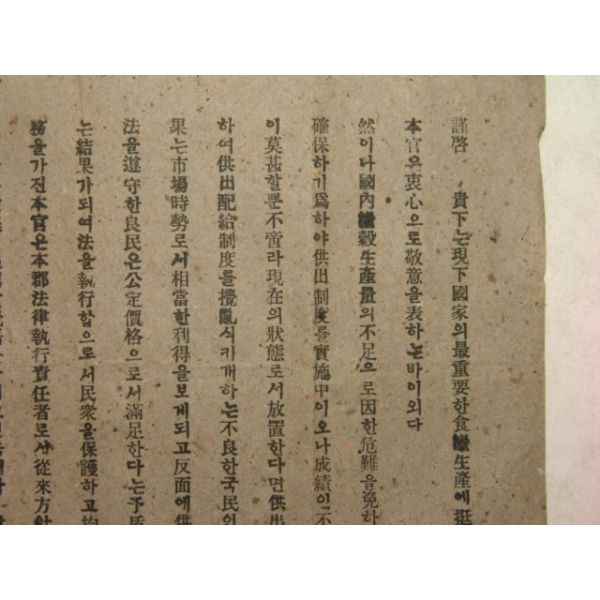 謹啓 貴下는現下國家의最重要한食糧生產에挺
本官으衷心으로敬意을表하는바이외다
然이나國內糧穀生產量의不足으로因한危難을免하
確保하기爲하야供出制度를實施中이오나成績인不
이莫甚할뿐不啻라現在의狀態로서放置한다면供出
하여供出配給制度를攪亂식키개하는不良한국民의
果는市場時勢로서相當한利得을보게되고反面에供
法을遵守한良民은公定價格으로서滿足한다는予盾
는結果가되여法을執行합으로서民衆을保護하고均
務을가진本官은本郡法律執行責任者로서從來方針